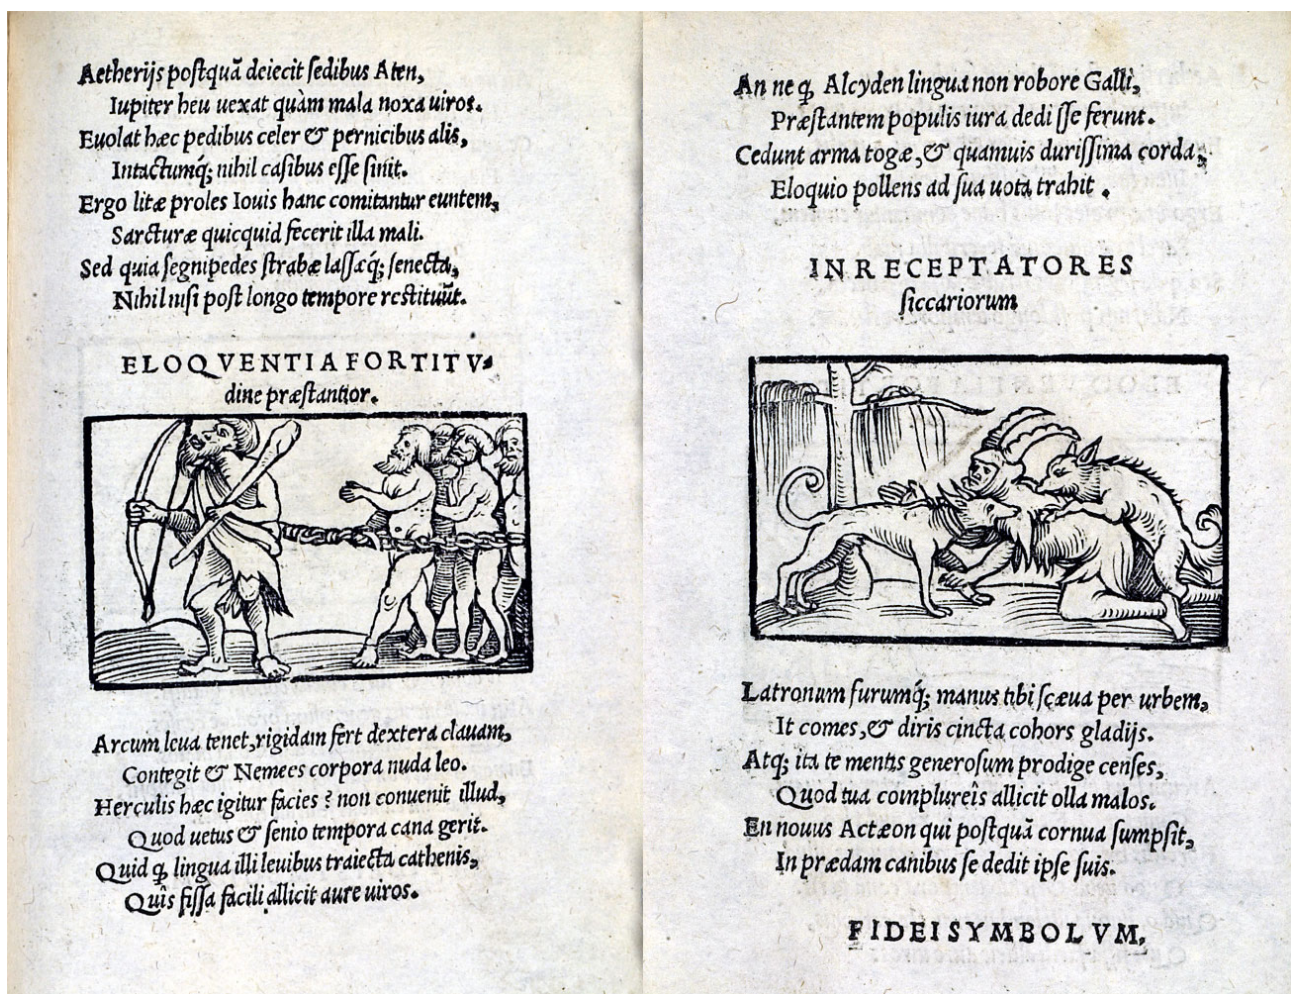 Aetherijs poſtquã deiecit ſedibus Aten,
Iupiter heu uexat quàm mala noxa uiros.
Euolat hæc pedibus celer & pernicibus alis,
Intactumq́; nihil caſibus eſſe ſinit.
Ergo litæ proles Iouis hanc comitantur euntem,
Sarcturæ quicquid fecerit illa mali.
Sed quia ſegnipedes ſtrabæ laſſæq́; ſenecta,
Nihil niſi poſt longo tempore reſtituũt.
ELOQVENTIA FORTITV-
dine præſtantior.
Arcum leua tenet, rigidam fert dextera clauam,
Contegit & Nemees corpora nuda leo.
Herculis hæc igitur facies? non conuenit illud,
Quod uetus & ſenio tempora cana gerit.
Quid ꝙ lingua illi leuibus traiecta cathenis,
Quîs fiſſa facili allicit aure uiros.
An ne ꝙ Alcyden lingua non robore Galli,
Præſtantem populis iura dediſſe ferunt.
Cedunt arma togæ, & quamuis duriſſima corda,
Eloquio pollens ad ſua uota trahit.
IN RECEPTATORES
ſiccariorum
Latronum furumq́; manus tibi ſcæua per urbem,
It comes, & diris cincta cohors gladijs.
Atq; ita te mentis generoſum prodige cenſes,
Quod tua complureîs allicit olla malos.
En nouus Actæon qui poſtquã cornua ſumpſit,
In prædam canibus ſe dedit ipſe ſuis.
FIDEI SYMBOLVM,